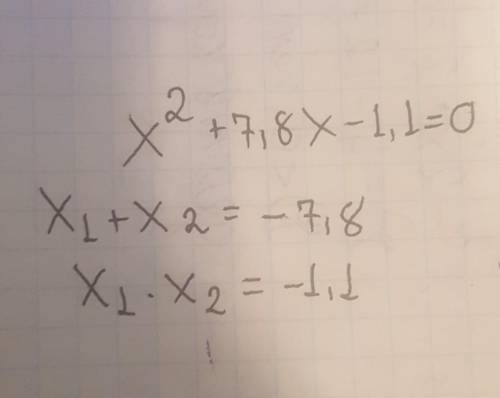 x² + 7,8x - 1,1 = 0
x₁ + x₂ = -7,8
x₁ · x₂ = -1,1